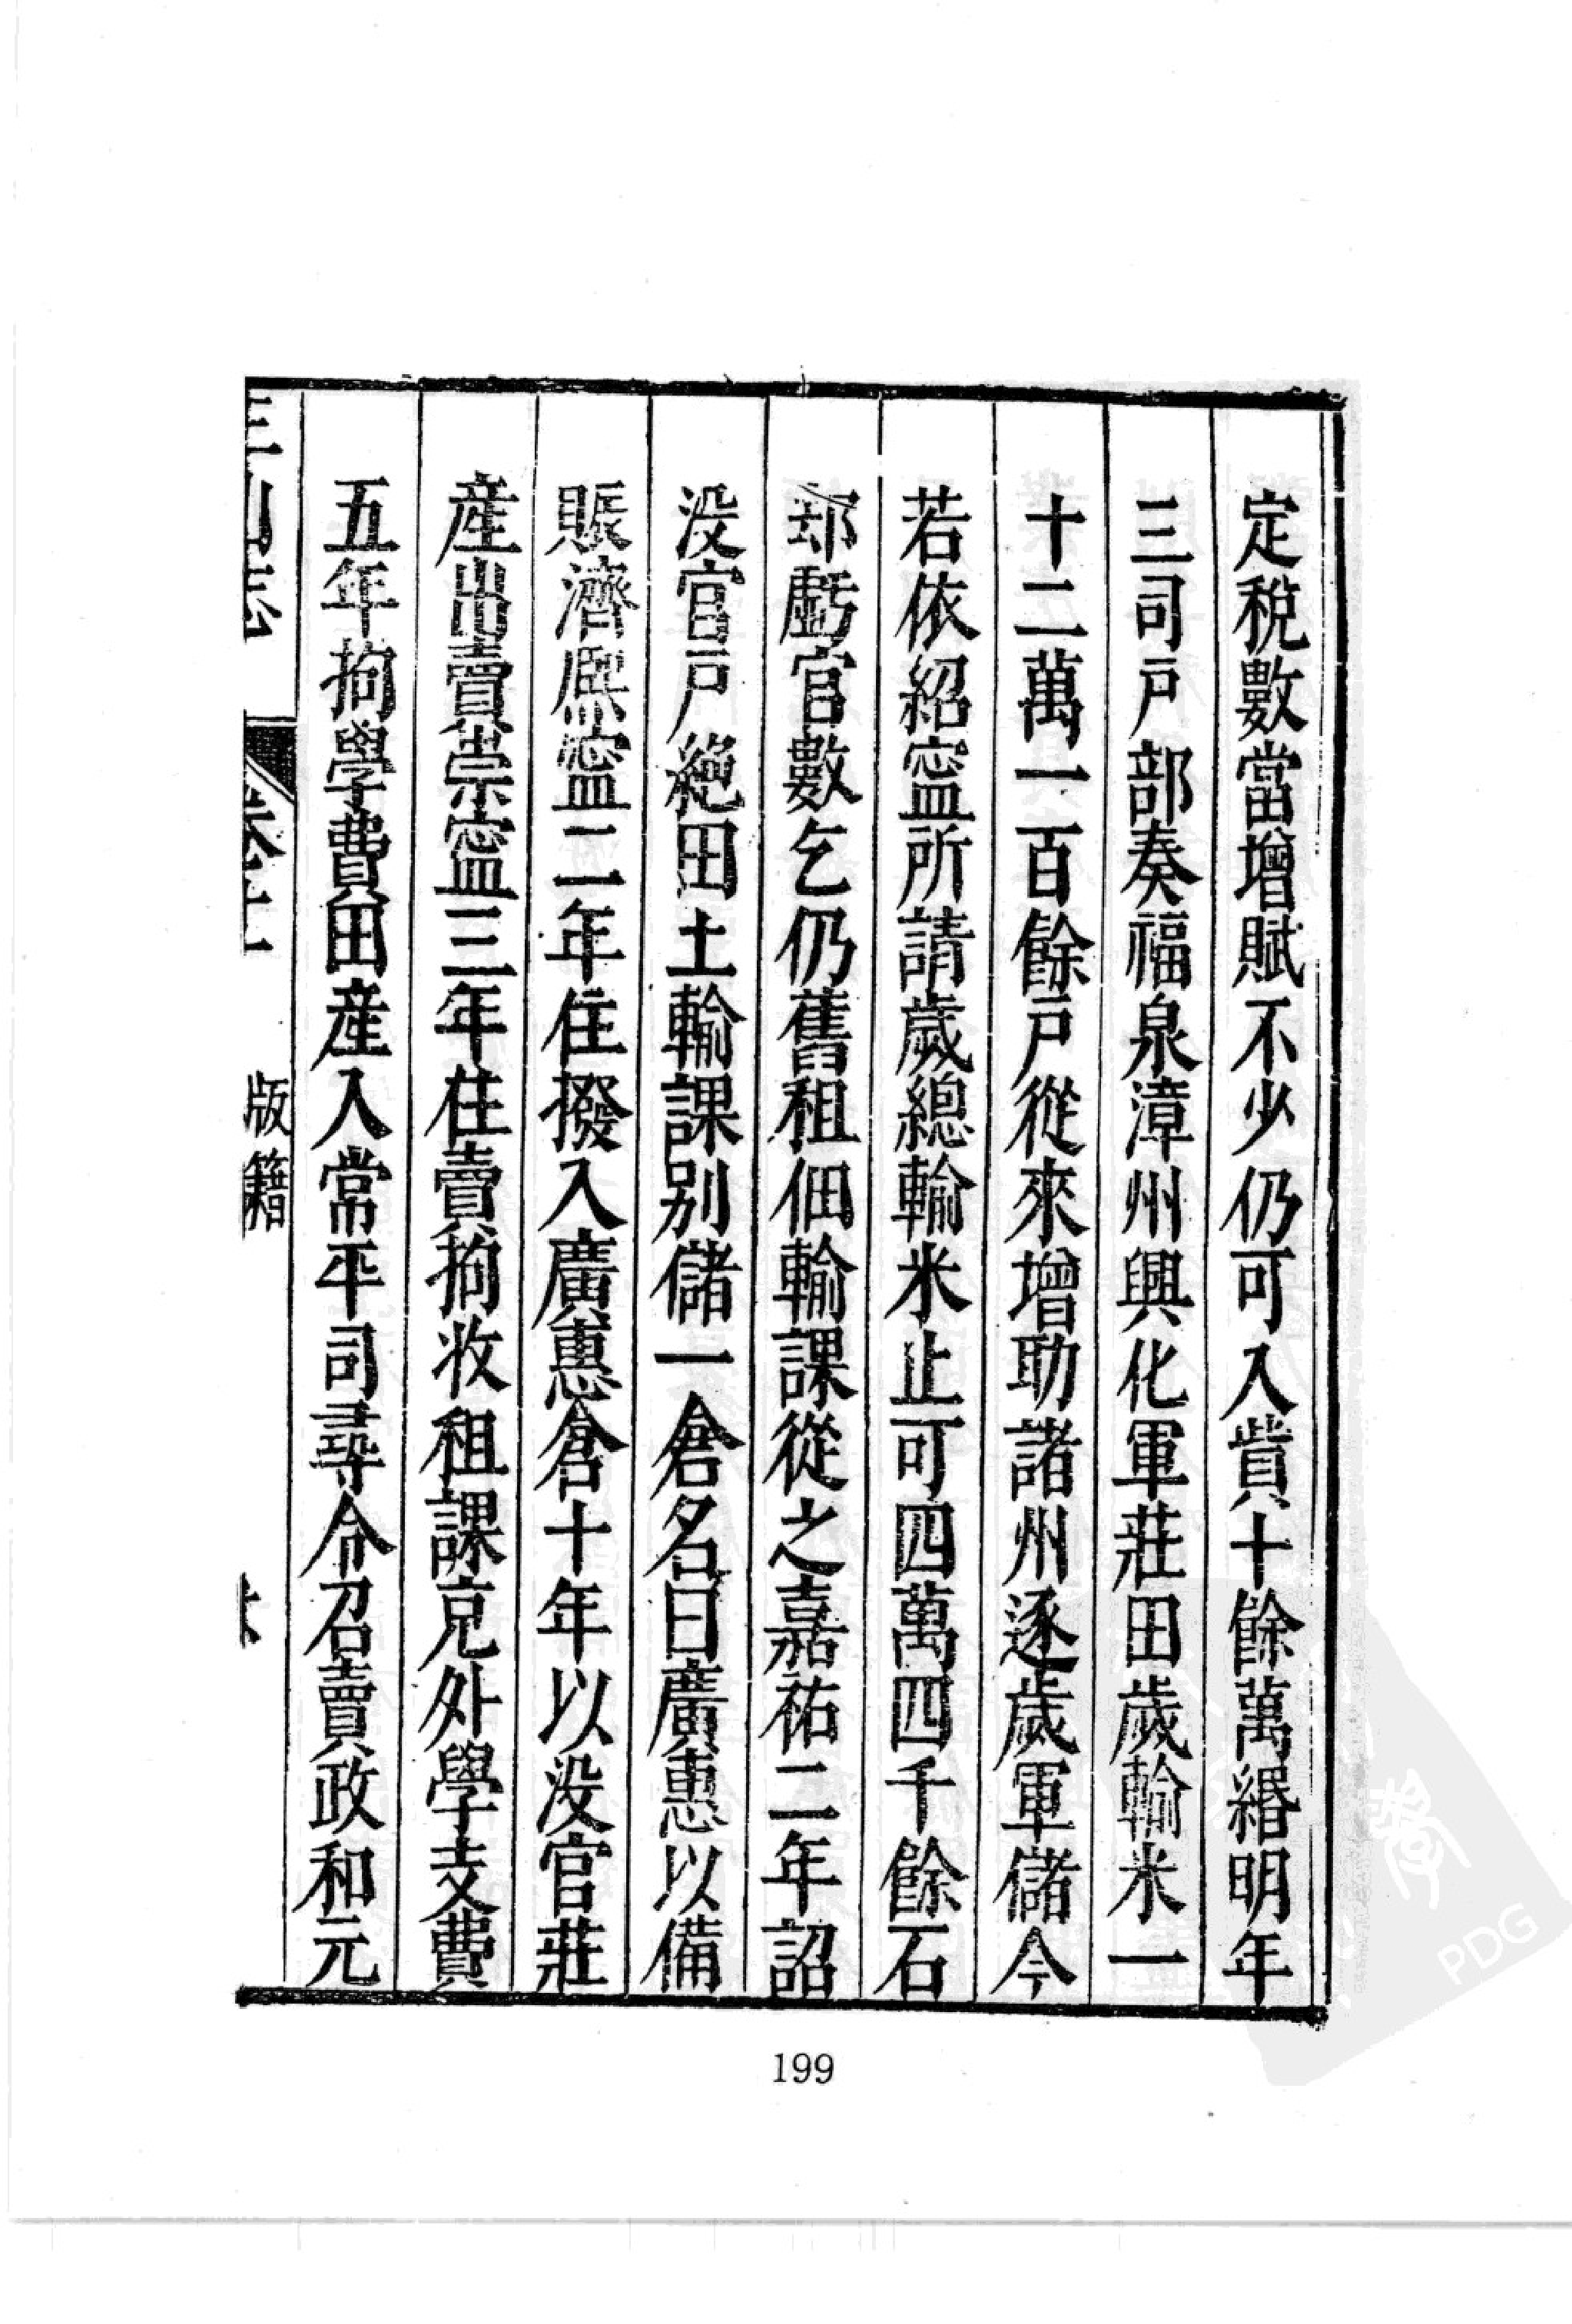 定稅數當增賦不少仍可入貲十餘萬緡明年
三司戶部奏福泉漳州興化軍莊田歲輸米一
十二萬一百餘戶從來增助諸州逐歲軍儲今
若依紹寍所請歲總輸米止可四萬四千餘石
却虧官數乞仍舊租佃輸課從之嘉祐二年詔
没官戶絶田土輸課别儲一倉名曰廣惠以備
賑濟熈寍二年住撥入廣惠倉十年以没官莊
産出賣崇寍三年住賣拘收租課充外學支費
五年拘學費田産入常平司尋令召賣政和元
三山志
卷十一
版籍
199
PDG